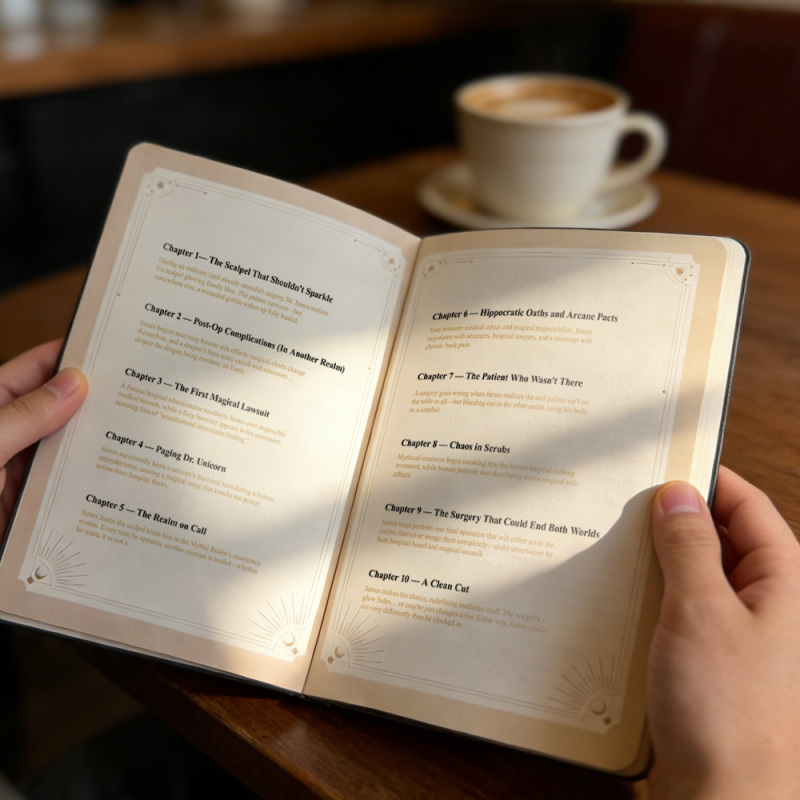 Chapter 1— The Scalpel That Shouldn't Sparkle
During an ordinary (and already stressful) surgery, Dr. James notices
his scalpel glowing faintly blue. The patient survives—but
somewhere else, a wounded goblin wakes up fully healed.
Chapter 2 — Post-Op Complications (In Another Realm)
James begins receiving bizarre side effects: surgical charts change
themselves, and a dragon's burn scars vanish mid-operation…
despite the dragon being nowhere on Earth.
Chapter 3 — The First Magical Lawsuit
A furious hospital administrator confronts James over impossible
medical records, while a fairy barrister appears in his apartment,
accusing him of "unauthorized inter-realm healing."
Chapter 4 — Paging Dr. Unicorn
James accidentally heals a unicorn's fractured horn during a human
appendectomy, causing a magical surge that knocks out power
across three hospital floors.
Chapter 5 — The Realm on Call
James learns the scalpel binds him to the Mythic Realm's emergency
system. Every time he operates, another creature is healed—whether
he wants it or not.
Chapter 6 — Hippocratic Oaths and Arcane Pacts
Torn between medical ethics and magical responsibility, James
negotiates with sorcerers, hospital lawyers, and a minotaur with
chronic back pain.
Chapter 7 — The Patient Who Wasn't There
A surgery goes wrong when James realizes the real patient isn't on
the table at all—but bleeding out in the other realm, using his body
as a conduit.
Chapter 8 — Chaos in Scrubs
Mythical creatures begin sneaking into the human hospital seeking
treatment, while human patients start developing minor magical side
effects.
Chapter 9 — The Surgery That Could End Both Worlds
James must perform one final operation that will either sever the
realms forever or merge them completely—under observation by
both hospital board and magical council.
Chapter 10 — A Clean Cut
James makes his choice, redefining medicine itself. The scalpel's
glow fades… or maybe just changes color. Either way, James clocks
out very differently than he clocked in.